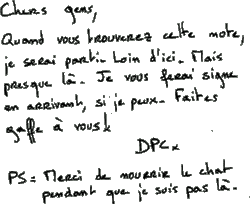 Chers gens,
Quand vous trouverez cette note,
je serai parti. Loin d'ici. Mais
presque là. Je vous ferai signe
en arrivant, si je peux. Faites
gaffe à vous!
DPCx
PS: Merci de nourrir le chat
pendant que je suis pas là.